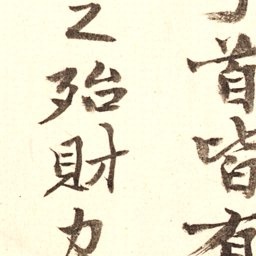 首皆有
之殆財力